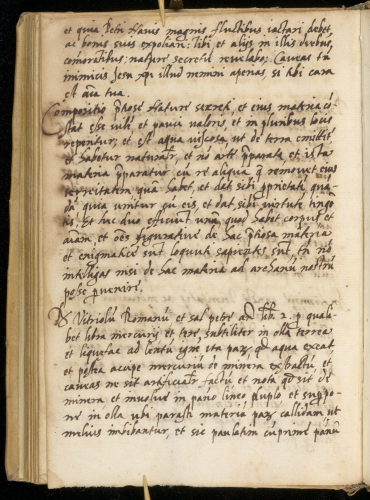 et quia Petri Navis magnis fluctibus iactari debet,
ac bonis suis expoliari: tibi et alijs in illis diebus,
comorantibus: nature secretũ revelabo: Caveas tñ
inimicis Jesu xpi illud nemini aperias si tibi cara
est aĩa tua.
Compositio p̃tiose Nature secreti, et eius materia cõ-
stat esse vili, et pauci valoris et in pluribus locis
repentur, et est aqua viscosa, ut de terra emittit
et habetur naturalr̃, et nõ arte p̃parata, et ista
materia p̃paratur cũ re aliqua q̃ removet eius
terreitatem quã habet, et dat sibi p̃prietatẽ quã-
dã quia unitur cũ eis, et dat sibi virtutẽ
et hec duo efficiunt unũ quod habet corpus et
aĩam, et oẽs de hac p̃tiosa materia
et enigmatice sunt locuti sapientes
intelligas nisi de hac materia ad archanũ nostrũ
posse pvenire.
Vitriolũ Romanũ et sal petre añ lib. 2. p quali-
bet libra mercurij et tere subtiliter in olla terrea
et liquefac ad lentũ igne ita qd aqua exeat
et postea accipe mercuriũ de minera extractũ, et
caveas ne sit artificialr̃ factũ et nota qd sit de
minera et involve in pãno lineo duplo et suppo-
ne in olla ubi parasti materiã callidam ut
melius imbibantur, et sic paulatim pãnũ